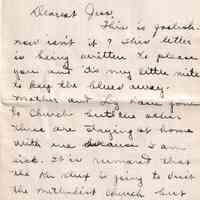 Dearest Jess,
This is foolish
now isn't it? This letter
is being written to please
you and do my little mite
to keep the blues away.
Mother and Ly have gone
to Church but the other
three are staying at home
with me because I am
sick. It is rumord that
the Ku Klux is going to visit
the Methodist Church but